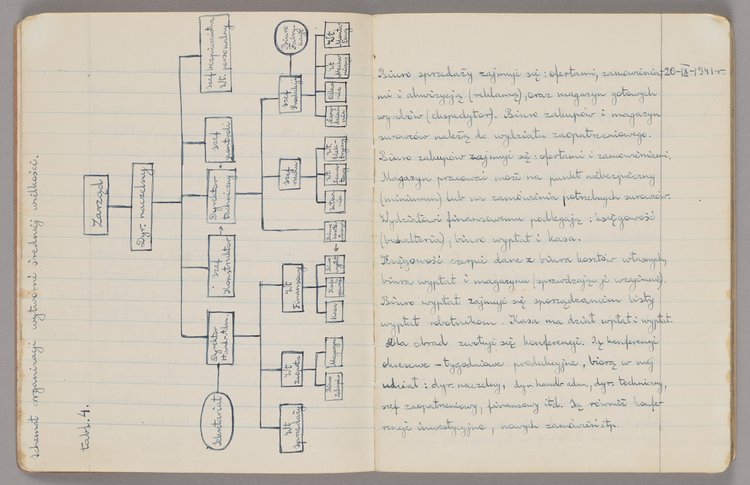 Schemat organizacji wytwórni średniej wielkości.
tabl. 4.
Zarząd
Dyr. naczelny
Szef bezpieczeństwa
Wt. personalny
Szef
Kontroli
Dyrektor
techniczny
Szef
Konstruktor
Dyrektor
Handl. Adm.
Sekretariat
Biuro
Szef
Produkcji
Szef
ruchu
Wt
Finansowy
Wt
Zaopatrz.
Wt
Sprzedaży
Kasa
Magazyn
Biuro
zakupów
20-IX-1941 r.
Biuro sprzedaży zajmuje się: ofertami, zamówienia-
mi i akwizycją (reklamą), oraz magazyn gotowych
wyrobów (ekspedytor). Biuro zakupów i magazyn
surowców należą do wydziału zaopatrzeniowego.
Biuro zakupów zajmuje się: ofertami i zamówieniami.
Magazyn pracować może na punkt niebezpieczny
(minimum) lub na zamówienia potrzebnych surowców.
Wydziałowi finansowemu podlegają: księgowość
(buchalteria), biuro wypłat i kasa.
Księgowość czerpie dane z biura kosztów własnych,
biura wypłat i magazynu (sprawdzając je wzajemnie).
Biuro wypłat zajmuje się sporządzaniem listy
wypłat robotników. Kasa ma dział wpłat i wypłat.
Dla obrad zwołuje się konferencje. Są konferencje
okresowe - tygodniowe produkcyjne, biorą w niej
udział: dyr. naczelny, dyr. handl-adm., dyr. techniczny,
szef zaopatrzeniowy, finansowy itd. Są również konfe-
rencje inwestycyjne, nowych zamówień itp.